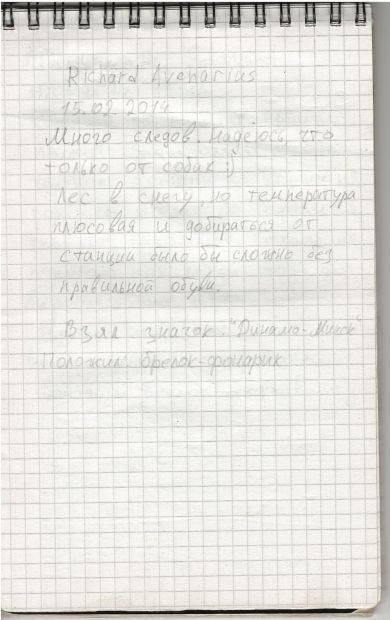 Richard Avenarius
15.02.2014
Много следов. Надеюсь, что
только от собак :)
Лес в снегу, но температура
плюсовая и добираться от
станции было бы сложно без
правильной обуви.
Взял значок "Динамо-Минск"
Положил: брелок-фонарик